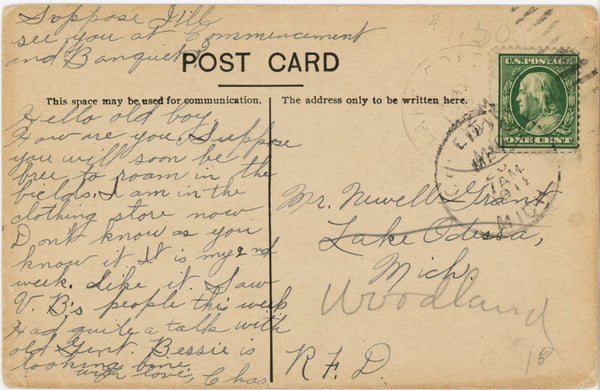 Suppose I'll
see you at Commencement
and Banquet?
POST CARD
This space may be used for communication.
The address only to be written here.
Hello old boy,
How are you. Suppose
you will soon be
free to roam in the
fields. I am in the
clothing store now
Dont know as you
know it. It is my 2nd
week. Like it. Saw
V. B's people this week
Had quite a talk with
old Gent. Bessie is
looking bone.
with love, Chas
U.S. POSTAGE
ONE CENT
MAY
7 AM
1911
MICH
Mr. Newell Grant,
Lake Odessa,
Mich.
Woodland
R.F.D.
18